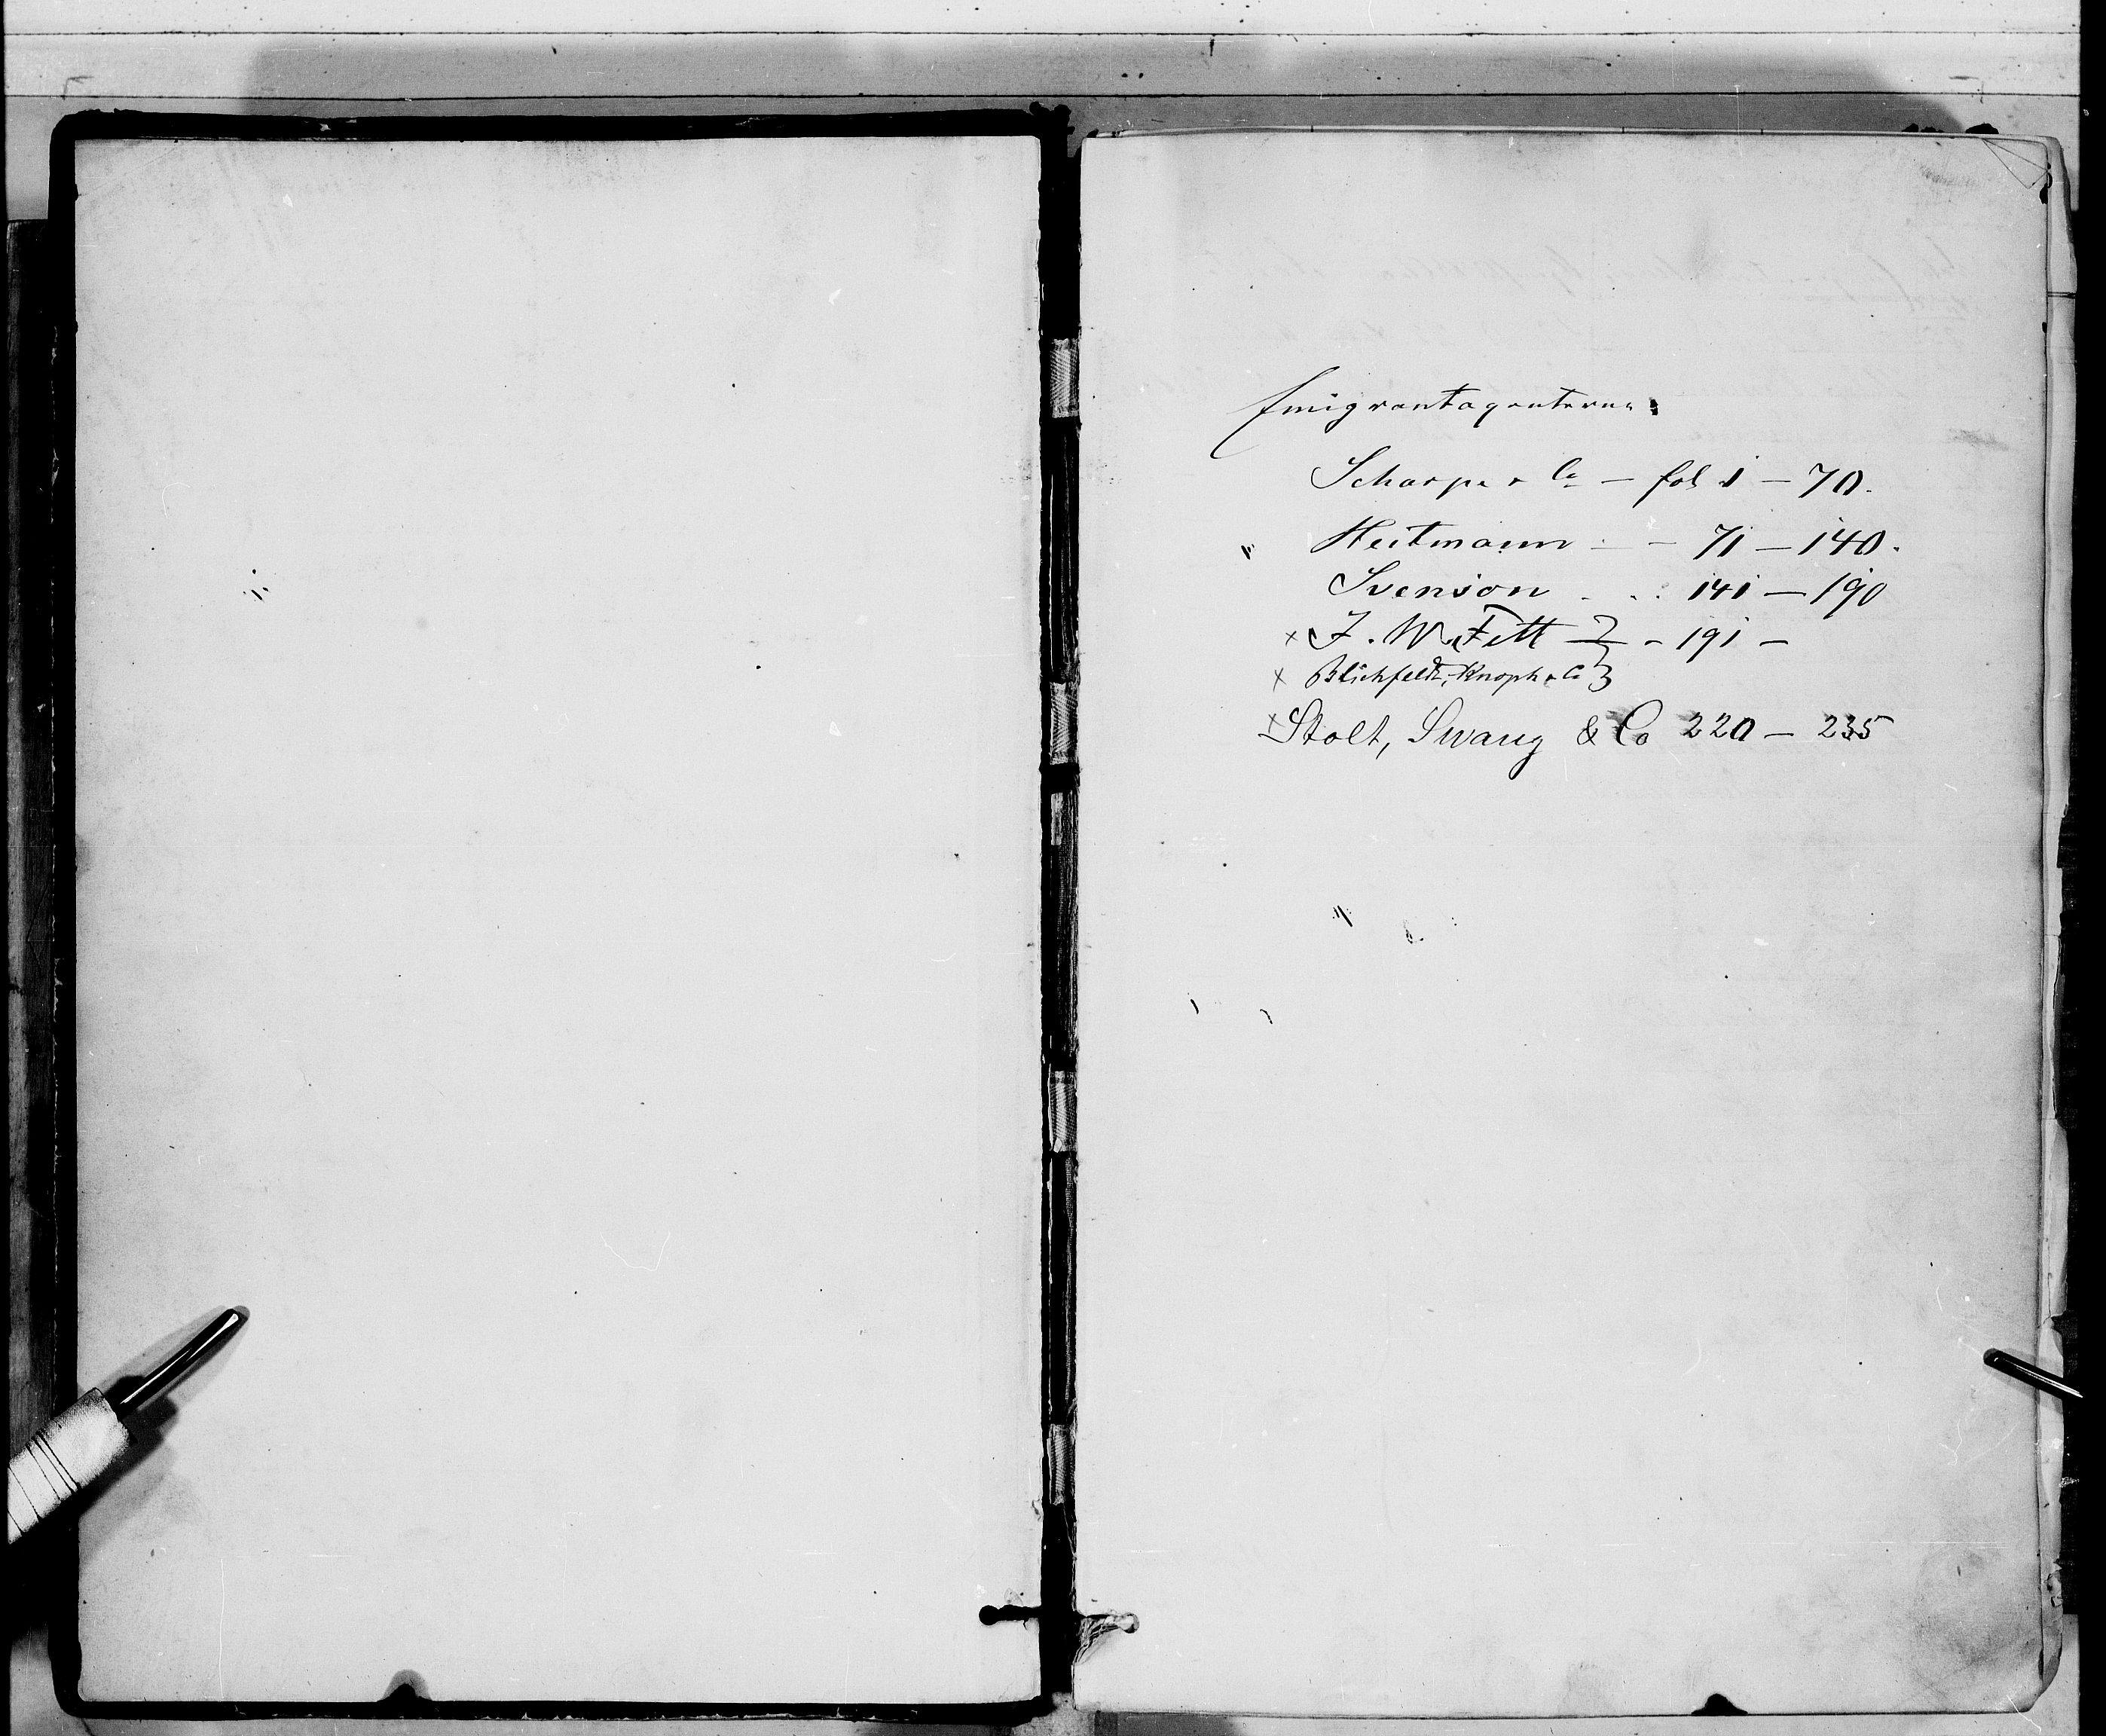 Emigrantagenterne:
Scharpe & Co — fol 1 — 70.
Heitmann — 71 — 140.
Svenson 141 — 190
× F. W. Fett } — 191 —
× Blichfeldt, Knoph & Co }
× Stolt, Swang & Co 220 — 235